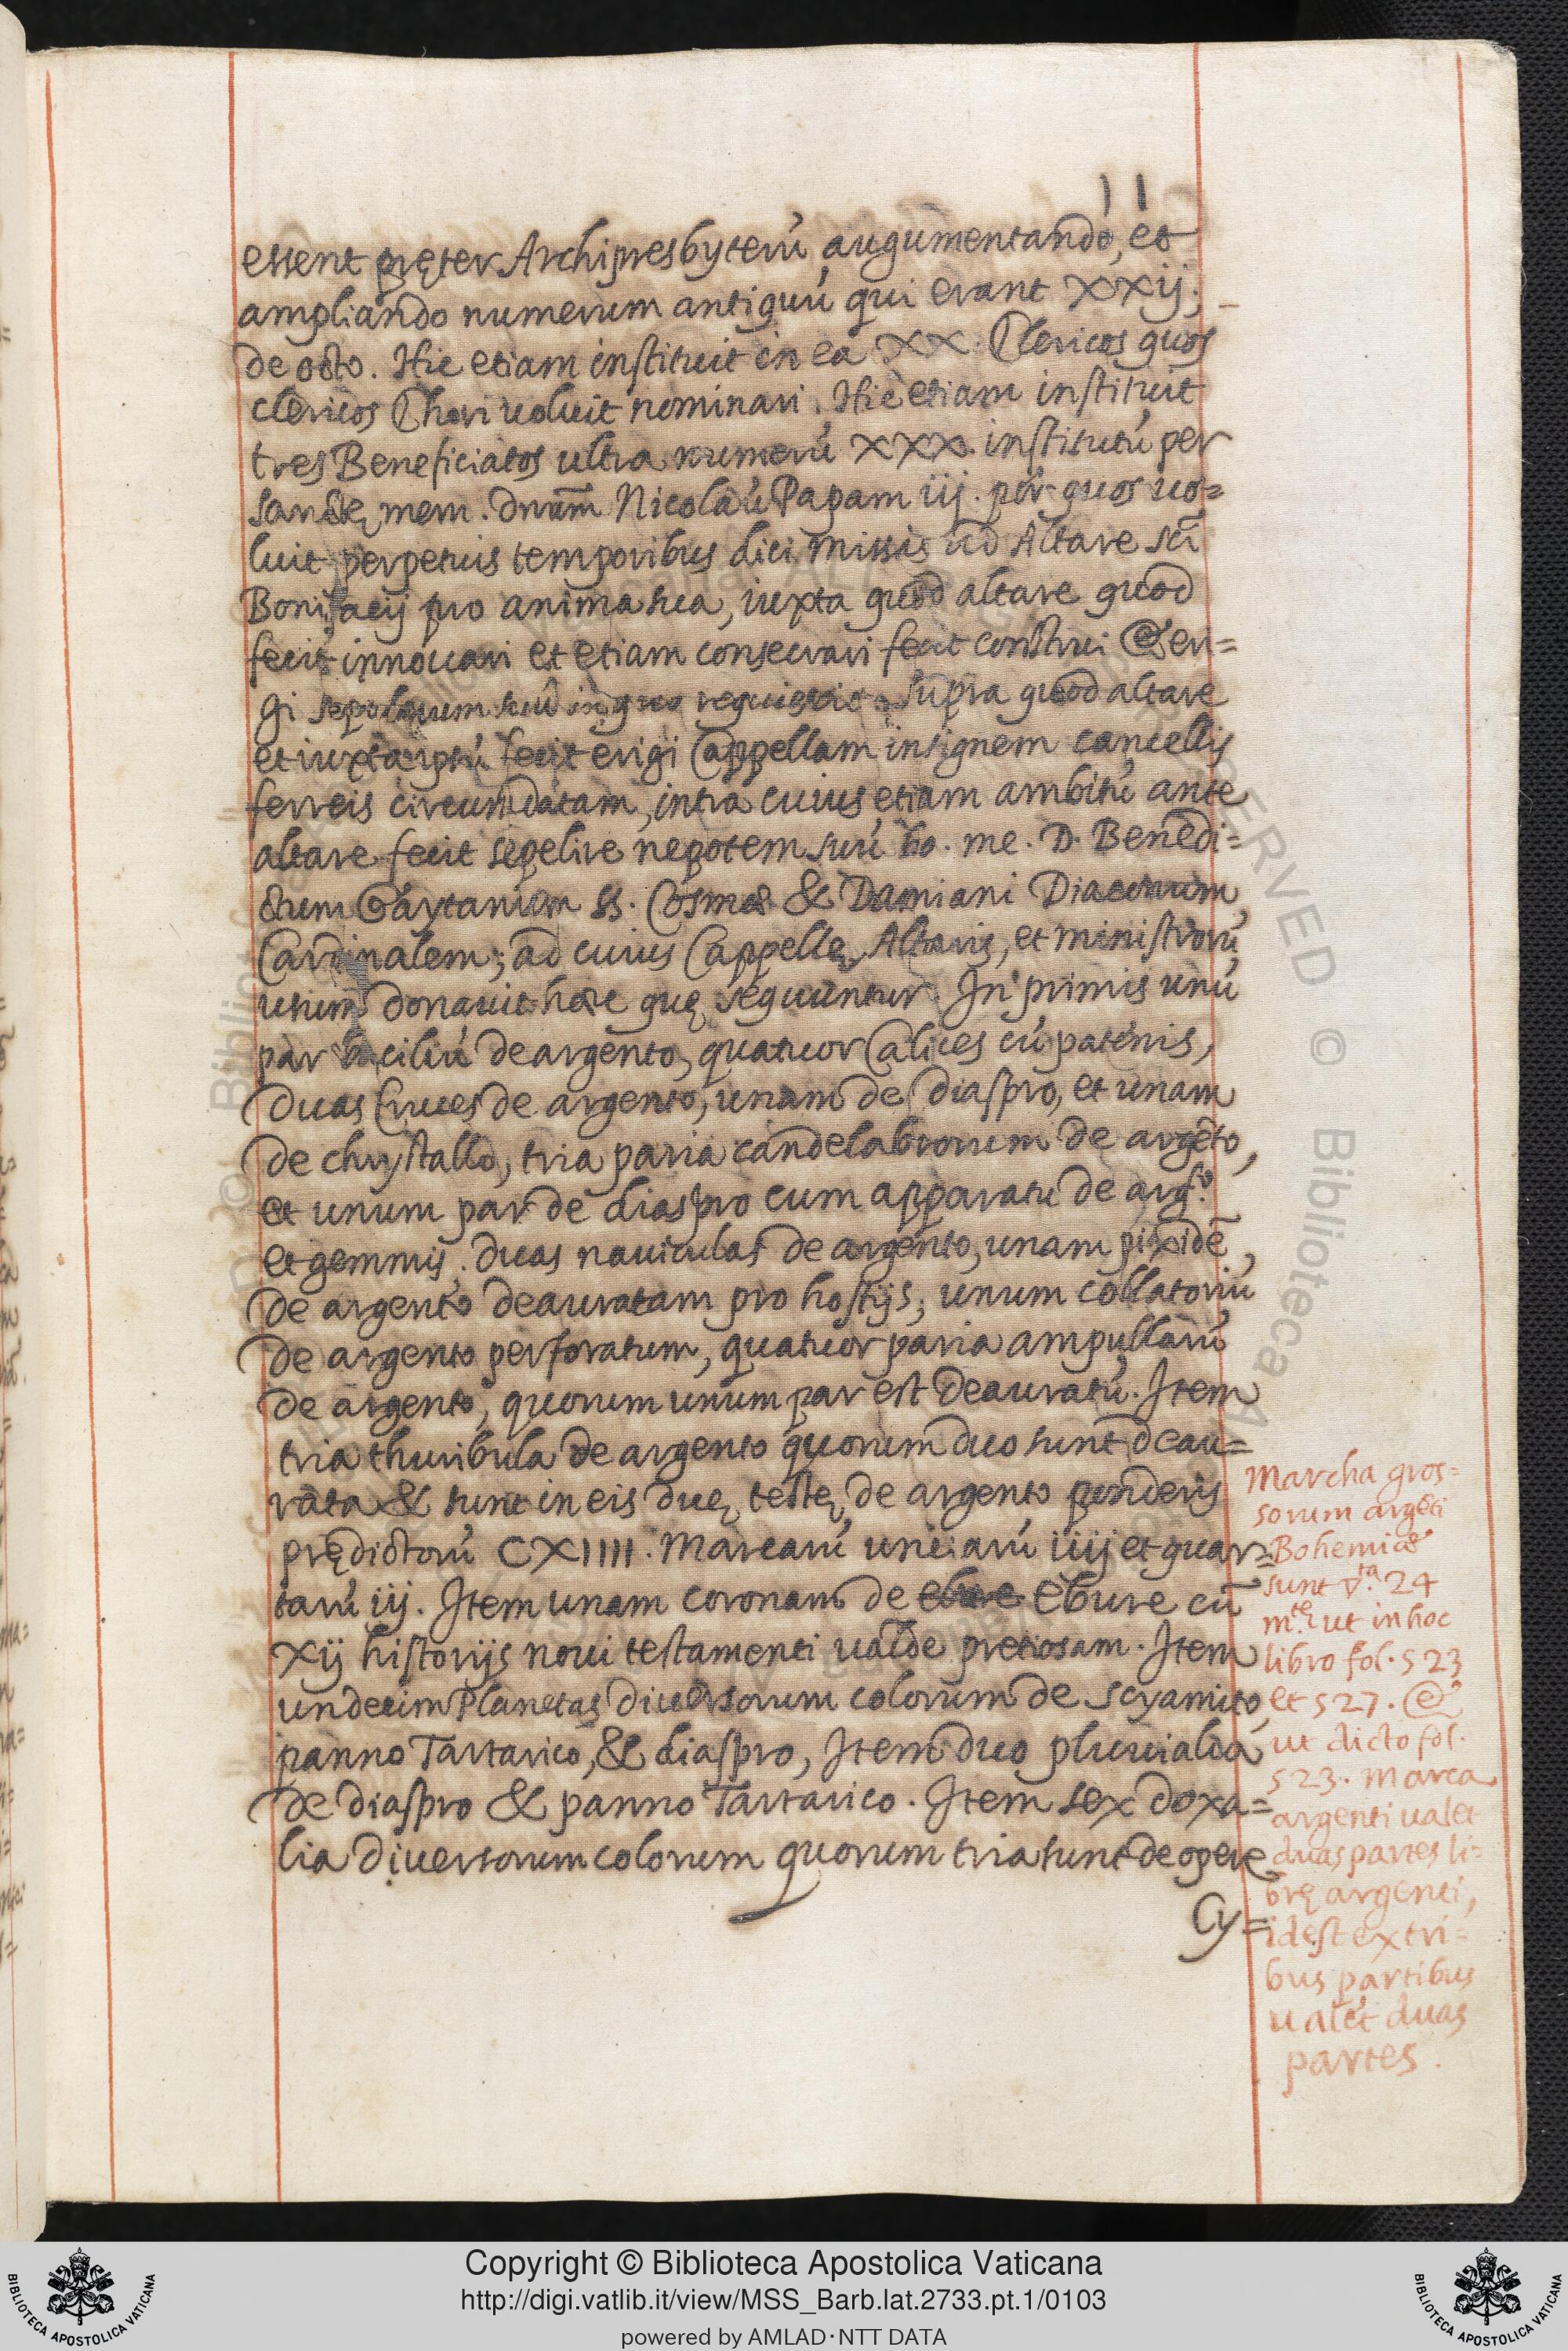 11
essent pręter Archipresbyterū augumentando, et
ampliando numerum antiquū qui erant XXij.
de octo. Hic etiam instituit in ea XX Clericos quos
clericos Chori uoluit nominari. Hic etiam instituit
tres Beneficiatos ultra numerū XXX institutū per
sanctę mem. dnūm Nicolaū Papam iij. per quos uo=
luit perpetuis temporibus dici missas ad Altare sc̄i
Bonifacij pro anima sua, iuxta quod altare quod
fecit innouari et etiam consecrari fecit construi & eri=
gi sepulcrum suū in quo requiescit, supra quod altare
et iuxta ipsū fecit erigi Cappellam insignem cancellis
ferreis circumdatam, intra cuius etiam ambitū ante
altare fecit sepelire nepotem suū bo. me. D. Benedi=
ctum Gaytanum SS. Cosmæ & Damiani Diaconum
Cardinalem; ad cuius Cappellę Altaris, et ministrorū
usum donauit hęc quę sequuntur. In primis unū
par baciliū de argento, quatuor Calices cū patenis,
duas Cruces de argento, unam de diaspro, et unam
de chrystallo, tria paria candelabrorum de argēto,
et unum par de diaspro cum apparatu de arg.º
et gemmis. duas nauiculas de argento, unam pixidē
de argento deauratam pro hostijs; unum collatoriū
de argento perforatum, quatuor paria ampullarū
de argento, quorum unum par est deauratū. Item
tria thuribula de argento quorum duo sunt deau=
rata & sunt in eis duę testę de argento ponderis
prędictorū CXIIII. Marcarū unciarū iiij et quar=
tarū iij. Item unam coronam de ebure ebure cū
Xij historijs noui testamenti ualde pretiosam. Item
undecim Planetas diuersorum colorum de scyamito,
panno Tartarico, & diaspro, Item duo pluuialia
de diaspro & panno Tartarico. Item sex doxa=
lia diuersorum colorum quorum tria sunt de opere
Cy=
Marcha gros=
sorum argēti
Bohemiæ
sunt v.ta 24
m.tę ut in hoc
libro fol. 523
et 527. &
ut dicto fol.
523. marca
argenti ualet
duas partes li=
brę argenti,
idest ex tri=
bus partibus
ualet duas
partes.
Copyright © Biblioteca Apostolica Vaticana
http://digi.vatlib.it/view/MSS_Barb.lat.2733.pt.1/0103
powered by AMLAD·NTT DATA
BIBLIOTECA APOSTOLICA VATICANA
BIBLIOTECA APOSTOLICA VATICANA